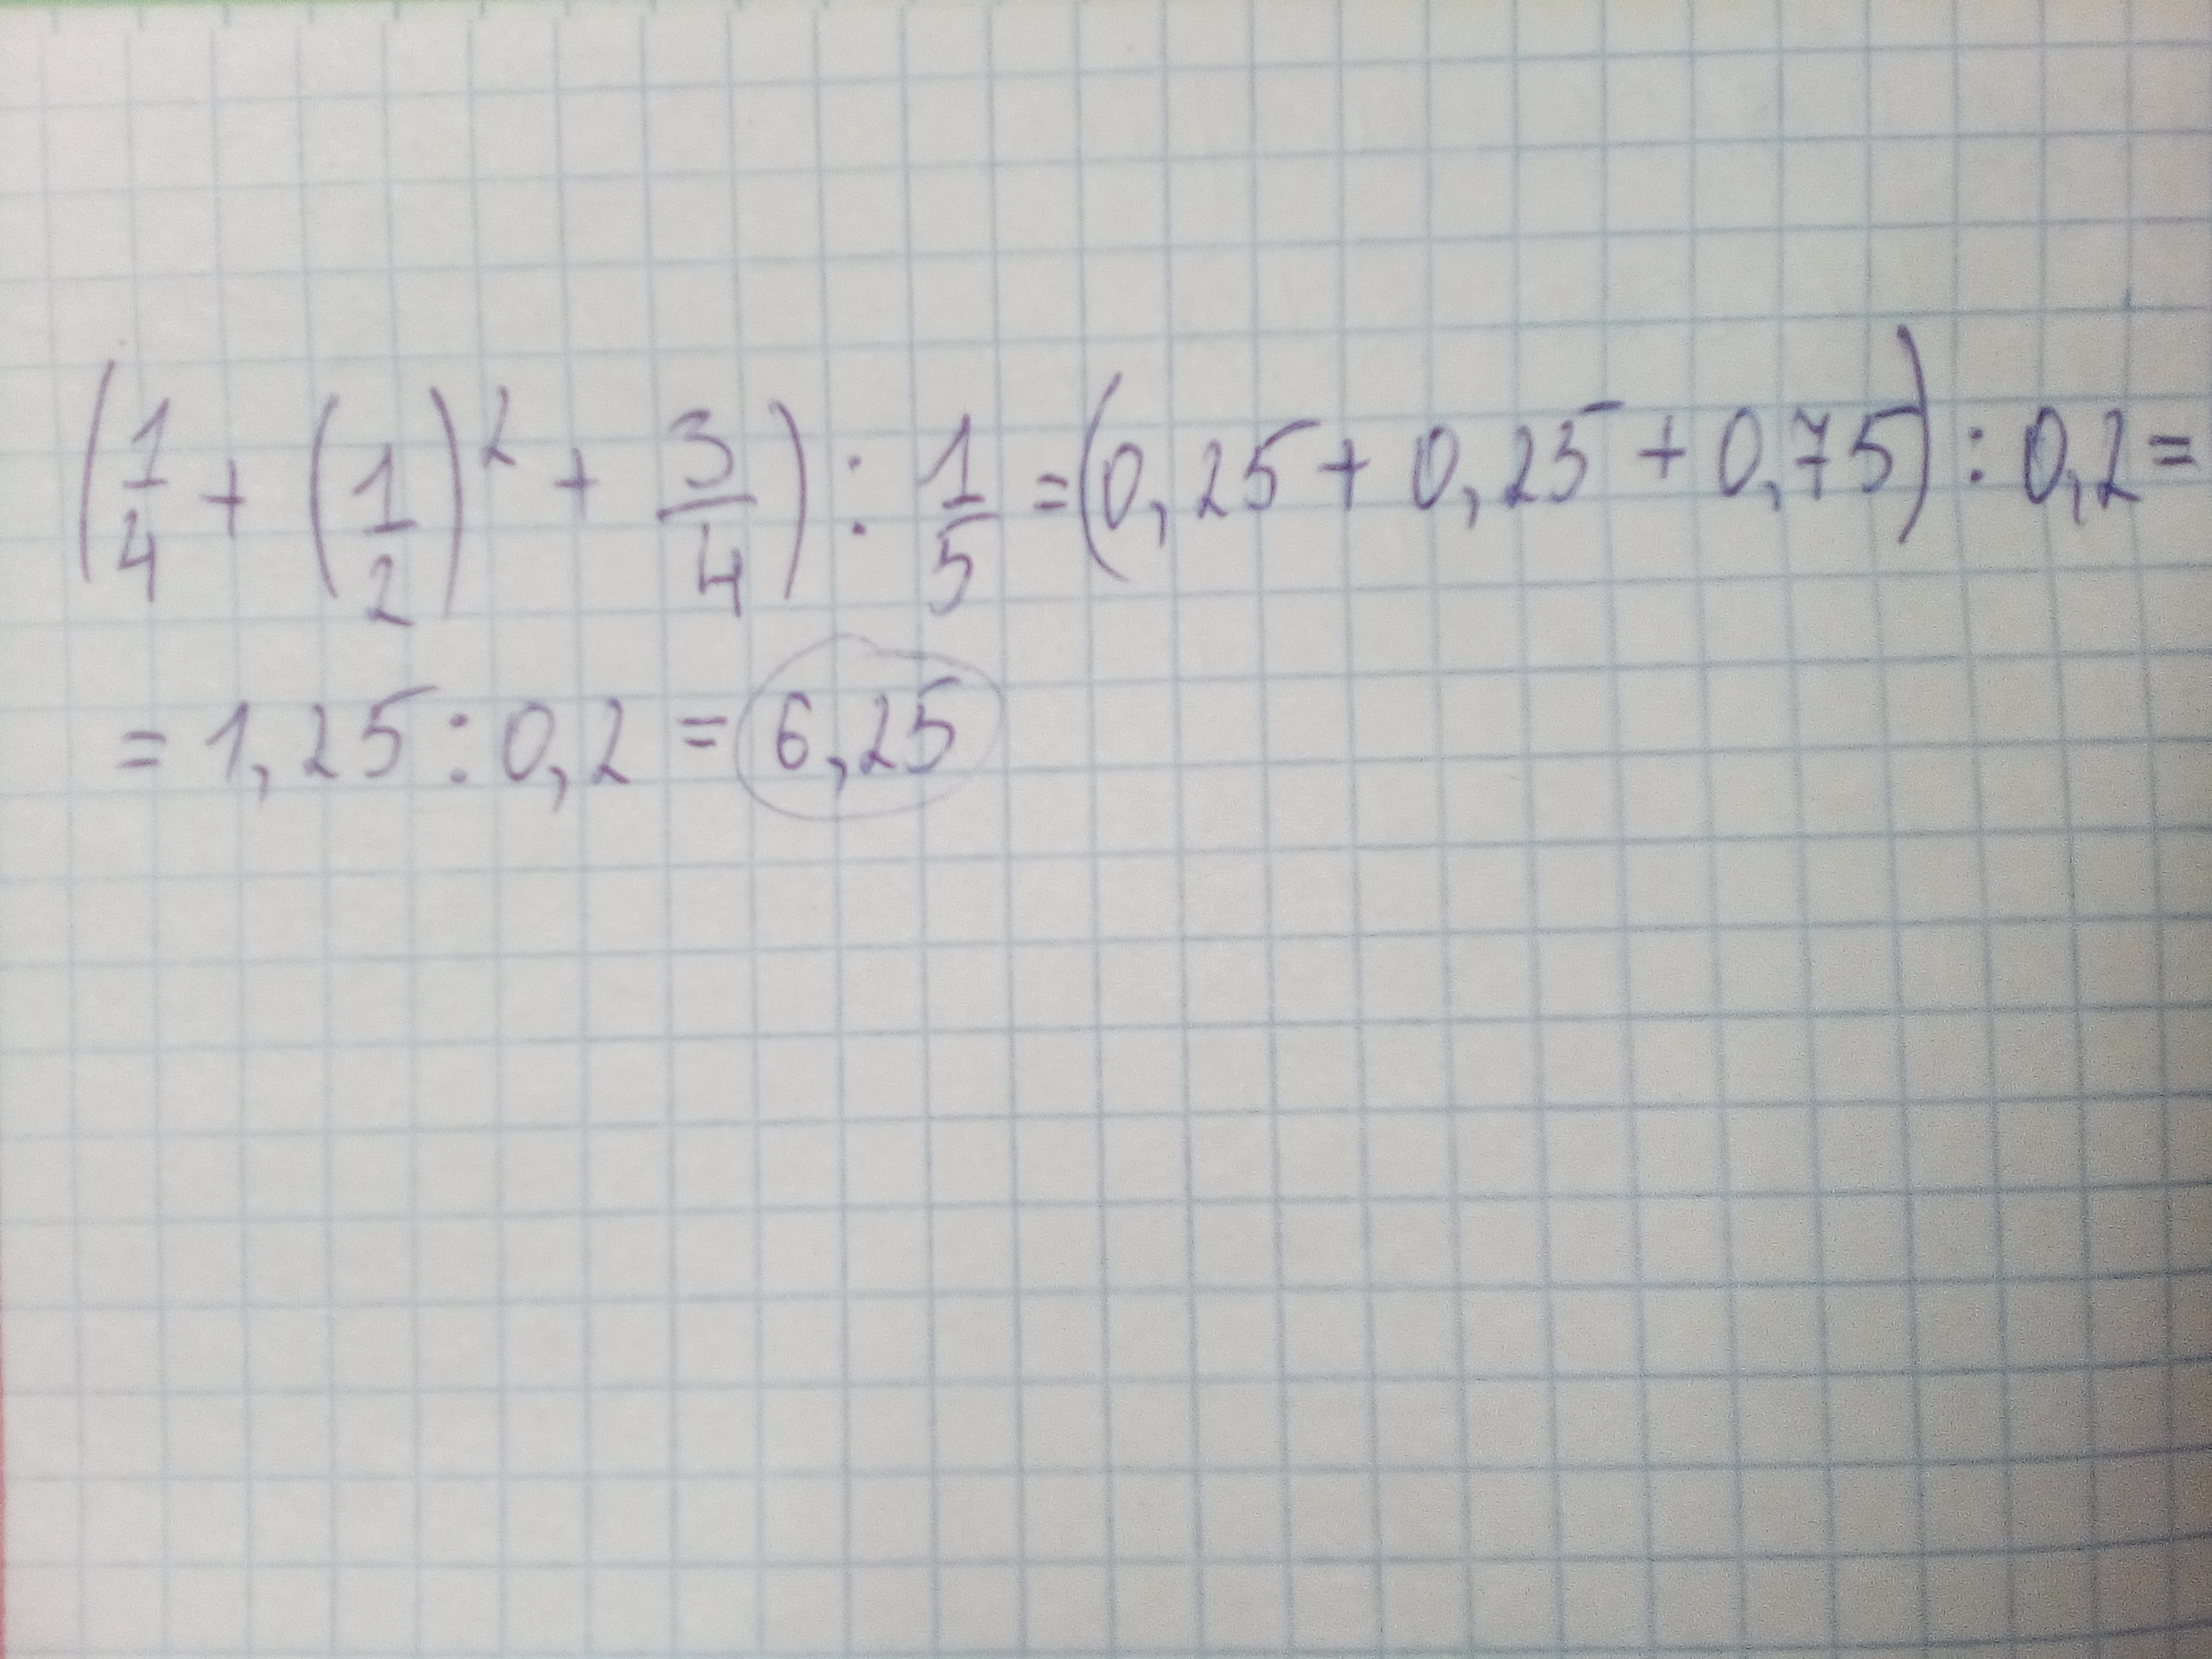 (1/4 + (1/2)² + 3/4) : 1/5 = (0,25 + 0,25 + 0,75) : 0,2 =
= 1,25 : 0,2 = 6,25